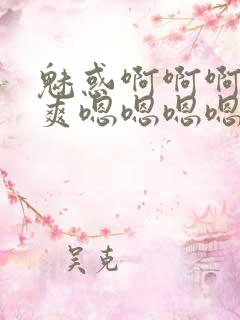 魅惑啊啊啊
爽嗯嗯嗯嗯
吴克